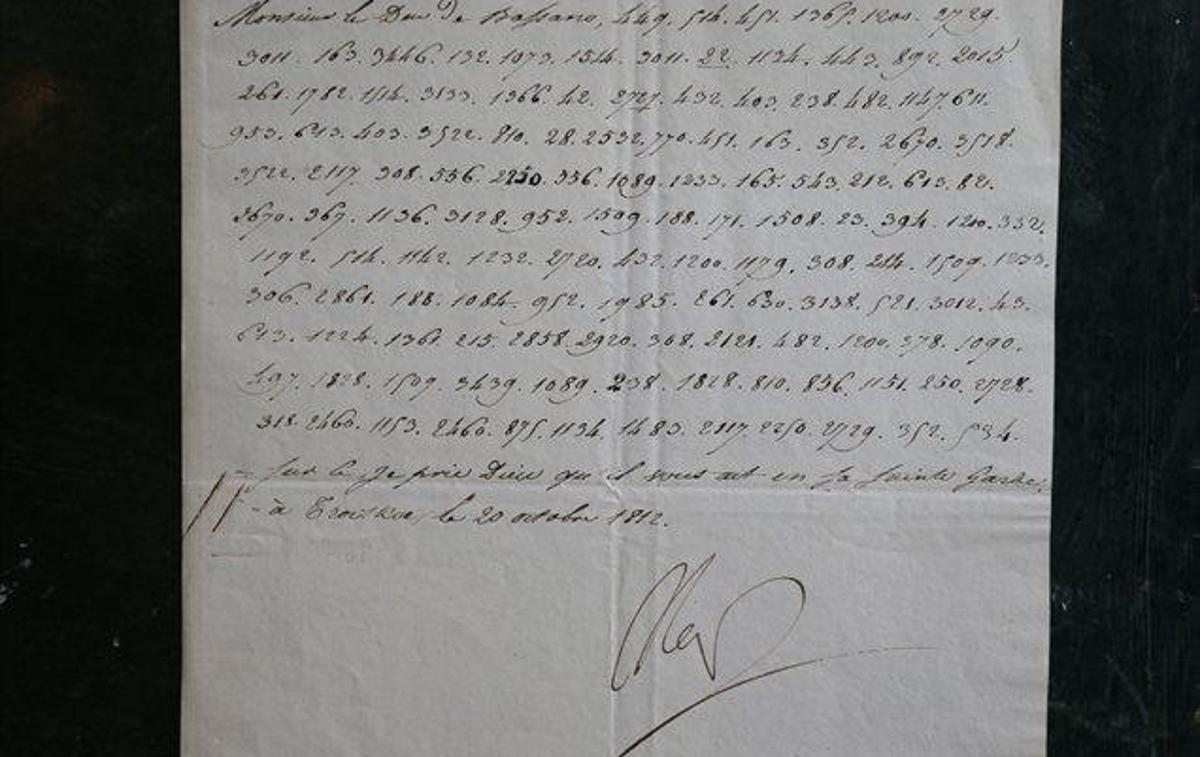 Monsieur le Duc de Bassano, 449. 514. 451. 1365. 1200. 2729.
3011. 163. 3446. 132. 1073. 1514. 3011. 22. 1134. 443. 892. 2015.
261. 1782. 1114. 3133. 1366. 42. 2727. 432. 403. 238. 482. 1147. 611.
953. 613. 403. 3522. 810. 28. 2532. 770. 451. 163. 352. 2670. 3518.
3522. 2117. 308. 556. 2250. 356. 1089. 1233. 165. 543. 212. 613. 82.
3670. 367. 1136. 3128. 952. 1509. 188. 171. 1508. 23. 394. 1200. 332.
1192. 514. 1142. 1232. 2720. 432. 1200. 1179. 308. 214. 1509. 1233.
306. 2861. 188. 1084. 952. 1985. 261. 630. 3138. 521. 3012. 43.
613. 1224. 1361. 215. 2858. 2920. 308. 2121. 482. 1200. 378. 1090.
497. 1828. 1509. 3439. 1089. 238. 1828. 810. 856. 1151. 250. 2728.
318. 2460. 1153. 2460. 875. 1134. 1483. 2117. 2250. 2729. 352. 534.
Sur ce, je prie Dieu qu'il vous ait en sa sainte garde,
à Troitskoe, le 20 octobre 1812.
Nap